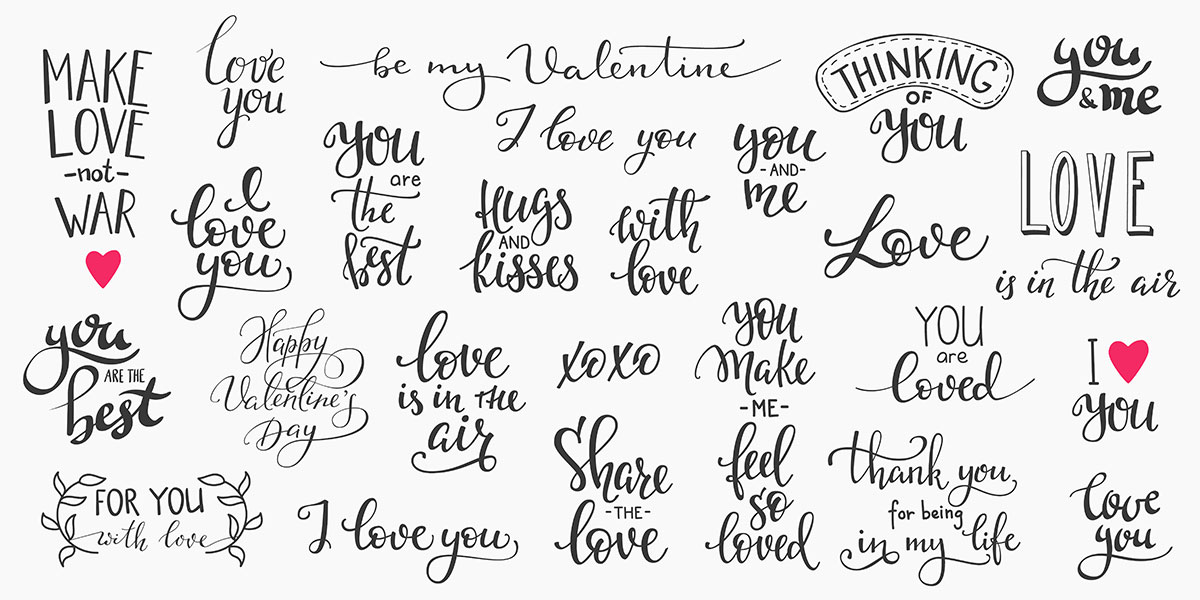 MAKE
LOVE
-not-
WAR
love
you
be my Valentine
THINKING
OF
you
you
& me
You
are
the
best
I love you
you
-AND-
me
I
love
you
Hugs
AND
kisses
with
love
Love
LOVE
is in the air
you
ARE THE
best
Happy
Valentine's
Day
love
is in THE
air
xoxo
you
Make
-ME-
feel
so
loved
YOU
are
loved
I
you
FOR YOU
with love
I love you,
Share
-THE-
love
thank you,
for being
in my life
love
you